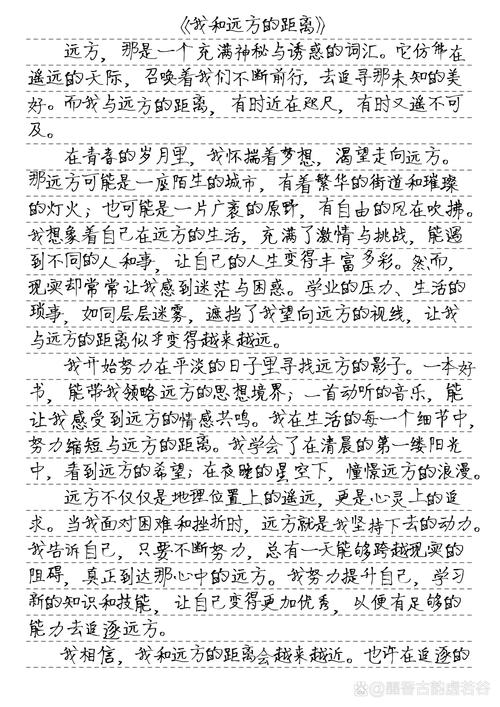 《我和远方的距离》
远方，那是一个充满神秘与诱惑的词汇。它仿佛在
遥远的天际，召唤着我们不断前行，去追寻那未知的美
好。而我与远方的距离，有时近在咫尺，有时又遥不可
及。
在青春的岁月里，我怀揣着梦想，渴望走向远方。
那远方可能是一座陌生的城市，有着繁华的街道和璀璨
的灯火；也可能是一片广袤的原野，有自由的风在吹拂。
我想象着自己在远方的生活，充满了激情与挑战，能遇
到不同的人和事，让自己的人生变得丰富多彩。然而，
现实却常常让我感到迷茫与困惑。学业的压力、生活的
琐事，如同层层迷雾，遮挡了我望向远方的视线，让我
与远方的距离似乎变得越来越远。
我开始努力在平淡的日子里寻找远方的影子。一本好
书，能带我领略远方的思想境界；一首动听的音乐，能
让我感受到远方的情感共鸣。我在生活的每一个细节中，
努力缩短与远方的距离。我学会了在清晨的第一缕阳光
中，看到远方的希望；在夜晚的星空下，憧憬远方的浪漫。
远方不仅仅是地理位置上的遥远，更是心灵上的追
求。当我面对困难和挫折时，远方就是我坚持下去的动力。
我告诉自己，只要不断努力，总有一天能够跨越现实的
阻碍，真正到达那心中的远方。我努力提升自己，学习
新的知识和技能，让自己变得更加优秀，以便有足够的
能力去追逐远方。
我相信，我和远方的距离会越来越近。也许在追逐的